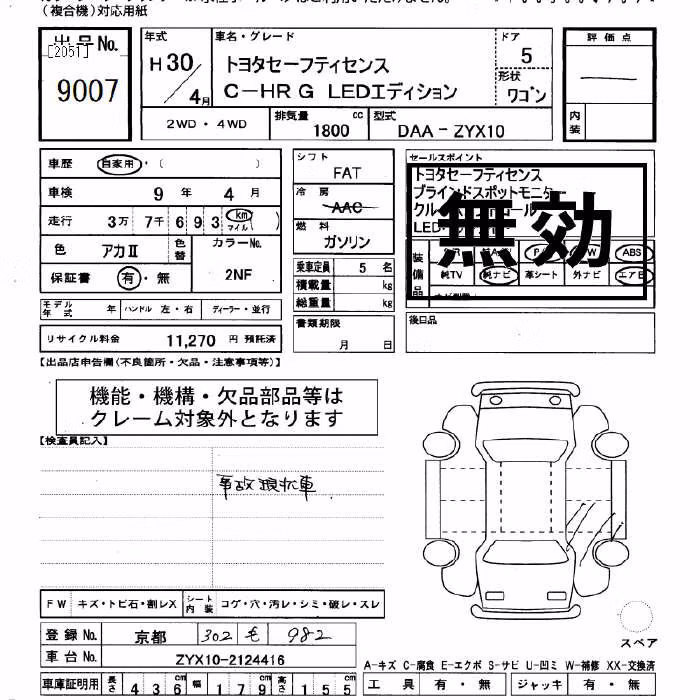 (複合機)対応用紙
出品No.
[2051]
9007
年式
H30/4月
車名・グレード
トヨタセーフティセンス
C-HR G LEDエディション
ドア
5
形状
ワゴン
評価点
内装
2WD・4WD
排気量
1800 cc
型式
DAA-ZYX10
車歴 自家用・( )
車検 9年 4月
走行 3万 7千 6 9 3 km マイル ( )
色 アカⅡ 色替 カラーNo.
2NF
保証書 有・無
モデル年式 年 ハンドル 左・右 ディーラー・並行
リサイクル料金 11,270 円 預託済
シフト
FAT
冷房
AAC
燃料
ガソリン
乗車定員 5 名
積載量 kg
総重量 kg
書類期限
月 日
セールスポイント
トヨタセーフティセンス
ブラインドスポットモニター
LED
無効
装備品
ABS
純TV 純ナビ 革シート 外ナビ エアB
後日品
【出品店申告欄(不良箇所・欠品・注意事項等)】
機能・機構・欠品部品等は
クレーム対象外となります
【検査員記入】
事故現状車
FW キズ・トビ石・割レX シート内装 コゲ・穴・汚レ・シミ・破レ・スレ
登録No. 京都 302 モ 982
車台No. ZYX10-2124416
車庫証明用 長さ 436 cm 幅 179 cm 高さ 155 cm
スペア
A-キズ C-腐食 E-エクボ S-サビ U-凹ミ W-補修 XX-交換済
工具 有・無 ジャッキ 有・無